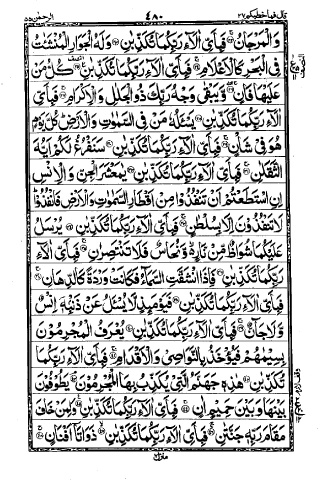 قال فما خطبكم ٢٧ ٤٨٠ الرحمن ٥٥
وَالْمَرْجَانُ ۚ فَبِأَيِّ اٰلَآءِ رَبِّكُمَا تُكَذِّبٰنِ وَلَهُ الْجَوَارِ الْمُنْشَئٰتُ
فِي الْبَحْرِ كَالْاَعْلَامِ ۚ فَبِأَيِّ اٰلَآءِ رَبِّكُمَا تُكَذِّبٰنِ كُلُّ مَنْ
عَلَيْهَا فَانٍ وَّيَبْقٰى وَجْهُ رَبِّكَ ذُو الْجَلٰلِ وَالْاِكْرَامِ ۚ فَبِأَيِّ
اٰلَآءِ رَبِّكُمَا تُكَذِّبٰنِ يَسْئَلُهٗ مَنْ فِي السَّمٰوٰتِ وَالْاَرْضِ كُلَّ يَوْمٍ
هُوَ فِيْ شَاْنٍ ۚ فَبِأَيِّ اٰلَآءِ رَبِّكُمَا تُكَذِّبٰنِ سَنَفْرُغُ لَكُمْ اَيُّهَ
الثَّقَلٰنِ ۚ فَبِأَيِّ اٰلَآءِ رَبِّكُمَا تُكَذِّبٰنِ يٰمَعْشَرَ الْجِنِّ وَالْاِنْسِ
اِنِ اسْتَطَعْتُمْ اَنْ تَنْفُذُوْا مِنْ اَقْطَارِ السَّمٰوٰتِ وَالْاَرْضِ فَانْفُذُوْا
لَا تَنْفُذُوْنَ اِلَّا بِسُلْطٰنٍ ۚ فَبِأَيِّ اٰلَآءِ رَبِّكُمَا تُكَذِّبٰنِ يُرْسَلُ
عَلَيْكُمَا شُوَاظٌ مِّنْ نَّارٍ وَّنُحَاسٌ فَلَا تَنْتَصِرٰنِ ۚ فَبِأَيِّ اٰلَآءِ
رَبِّكُمَا تُكَذِّبٰنِ فَاِذَا انْشَقَّتِ السَّمَآءُ فَكَانَتْ وَرْدَةً كَالدِّهَانِ
فَبِأَيِّ اٰلَآءِ رَبِّكُمَا تُكَذِّبٰنِ فَيَوْمَئِذٍ لَّا يُسْئَلُ عَنْ ذَنْۢبِهٖٓ اِنْسٌ
وَّلَا جَآنٌّ ۚ فَبِأَيِّ اٰلَآءِ رَبِّكُمَا تُكَذِّبٰنِ يُعْرَفُ الْمُجْرِمُوْنَ
بِسِيْمٰهُمْ فَيُؤْخَذُ بِالنَّوَاصِيْ وَالْاَقْدَامِ ۚ فَبِأَيِّ اٰلَآءِ رَبِّكُمَا
تُكَذِّبٰنِ هٰذِهٖ جَهَنَّمُ الَّتِيْ يُكَذِّبُ بِهَا الْمُجْرِمُوْنَ يَطُوْفُوْنَ
بَيْنَهَا وَبَيْنَ حَمِيْمٍ اٰنٍ ۚ فَبِأَيِّ اٰلَآءِ رَبِّكُمَا تُكَذِّبٰنِ وَلِمَنْ خَافَ
مَقَامَ رَبِّهٖ جَنَّتٰنِ ۚ فَبِأَيِّ اٰلَآءِ رَبِّكُمَا تُكَذِّبٰنِ ذَوَاتَآ اَفْنَانٍ
منزل